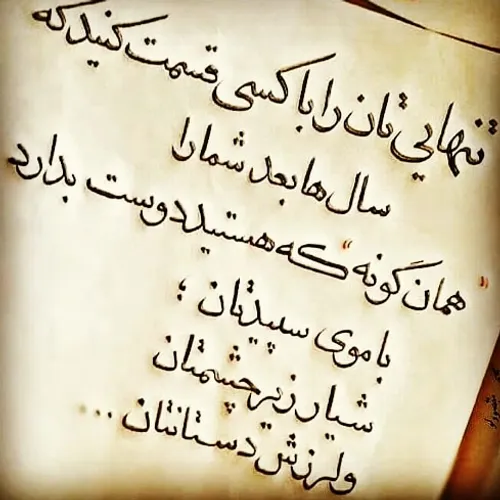 تنهایی تان را با کسی قسمت کنید که
سال ها بعد شما را
"همان گونه" که هستید دوست بدارد
با موی سپیدتان ؛
شیار زیر چشمتان
و لرزش دستانتان ...